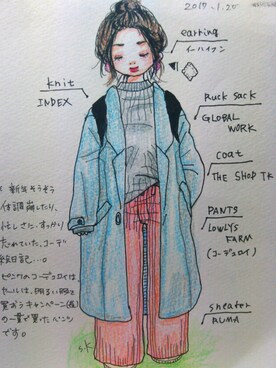 2017.1.20
earring
イーハイフン
knit
INDEX
Ruck sack
GLOBAL
WORK
coat
THE SHOP TK
PANTS
LOWLYS
FARM
(コーデュロイ)
sneaker
PUMA
※ 新年そうそう
体調崩したり、
忙しさに、すっかり
ためていた、コーデ
絵日記…。
ピンクのコーデュロイは
セールは、
の一貫で買けたパンツ
です。
s.K